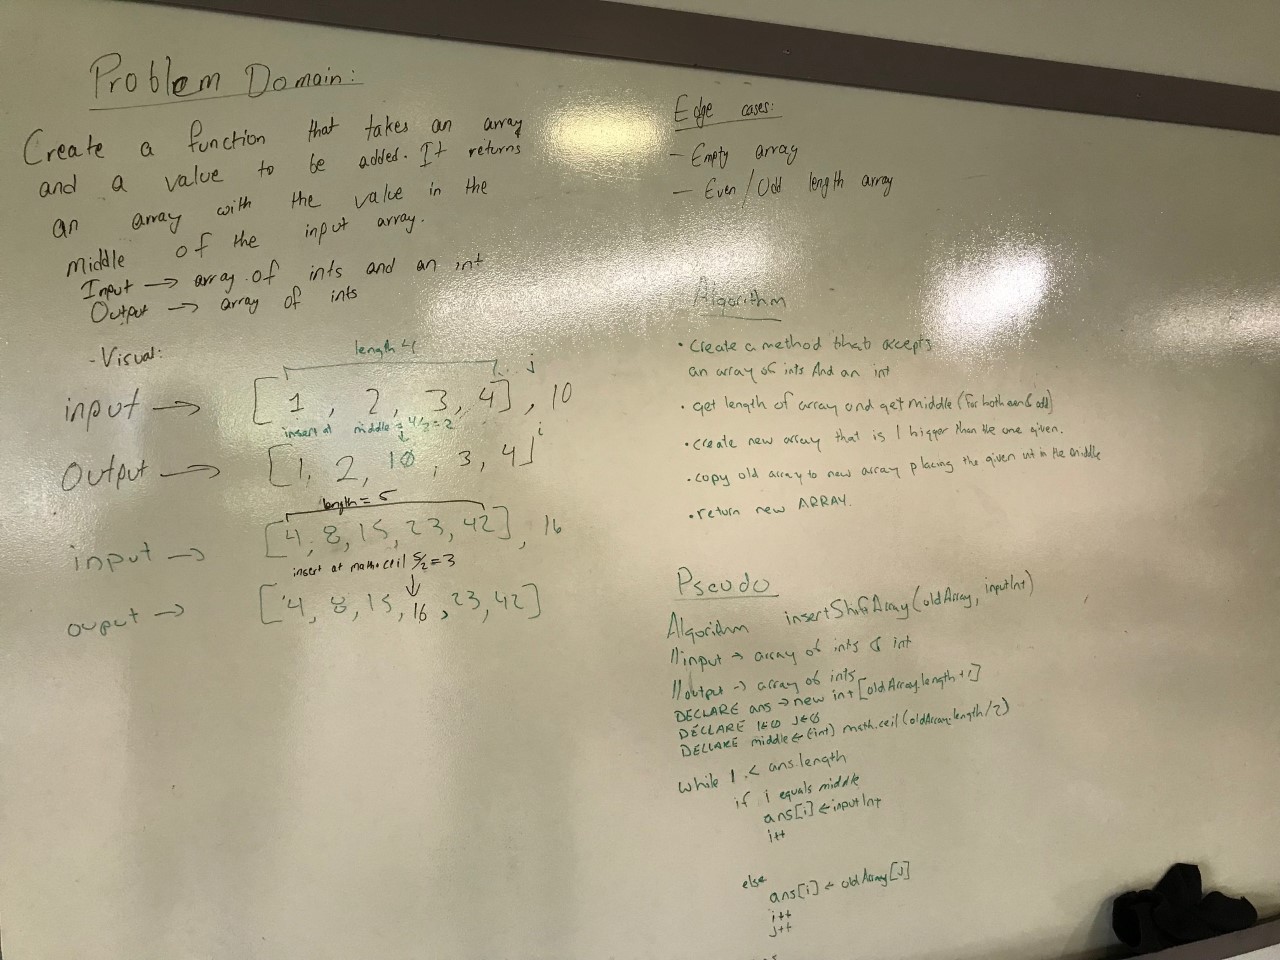 Problem Domain:
Create a function that takes an array
and a value to be added. It returns
an array with the value in the
middle of the input array.
Input → array of ints and an int
Output → array of ints
- Visual:
length 4
j
input → [1, 2, 3, 4], 10
insert at middle = 4/2 = 2
i
Output → [1, 2, 10, 3, 4]
length = 5
input → [4, 8, 15, 23, 42], 16
insert at math.ceil 5/2 = 3
ouput → [4, 8, 15, 16, 23, 42]
Edge cases:
- Empty array
- Even/Odd length array
Algorithm
• Create a method that accepts
an array of ints And an int
• get length of array and get middle (For both even & odd)
• create new array that is 1 bigger than the one given.
• copy old array to new array placing the given int in the middle
• return new ARRAY.
Pseudo
Algorithm insertShiftArray(oldArray, inputInt)
//input → array of ints & int
//output → array of ints
DECLARE ans → new int [oldArray.length + 1]
DECLARE i←0 j←0
DECLARE middle ← (int) math.ceil (oldArray.length/2)
while i < ans.length
if i equals middle
ans[i] ← inputInt
i++
else
ans[i] ← oldArray[j]
i++
j++